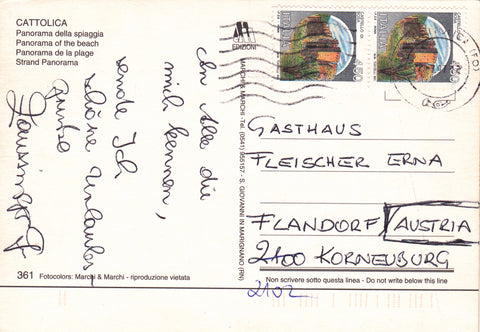 CATTOLICA
Panorama della spiaggia
Panorama of the beach
Panorama de la plage
Strand Panorama
An Alle die
mich kennen,
sende Ich
schöne Urlaubs
Grüße
EDIZIONI
MARCHI & MARCHI - Tel. (0541) 955157 - S. GIOVANNI IN MARIGNANO (RN)
450
450
GASTHAUS
FLEISCHER ERNA
FLANDORF/AUSTRIA
2100 KORNEUBURG
2102
361 Fotocolors: Marchi & Marchi - riproduzione vietata
Non scrivere sotto questa linea - Do not write below this line